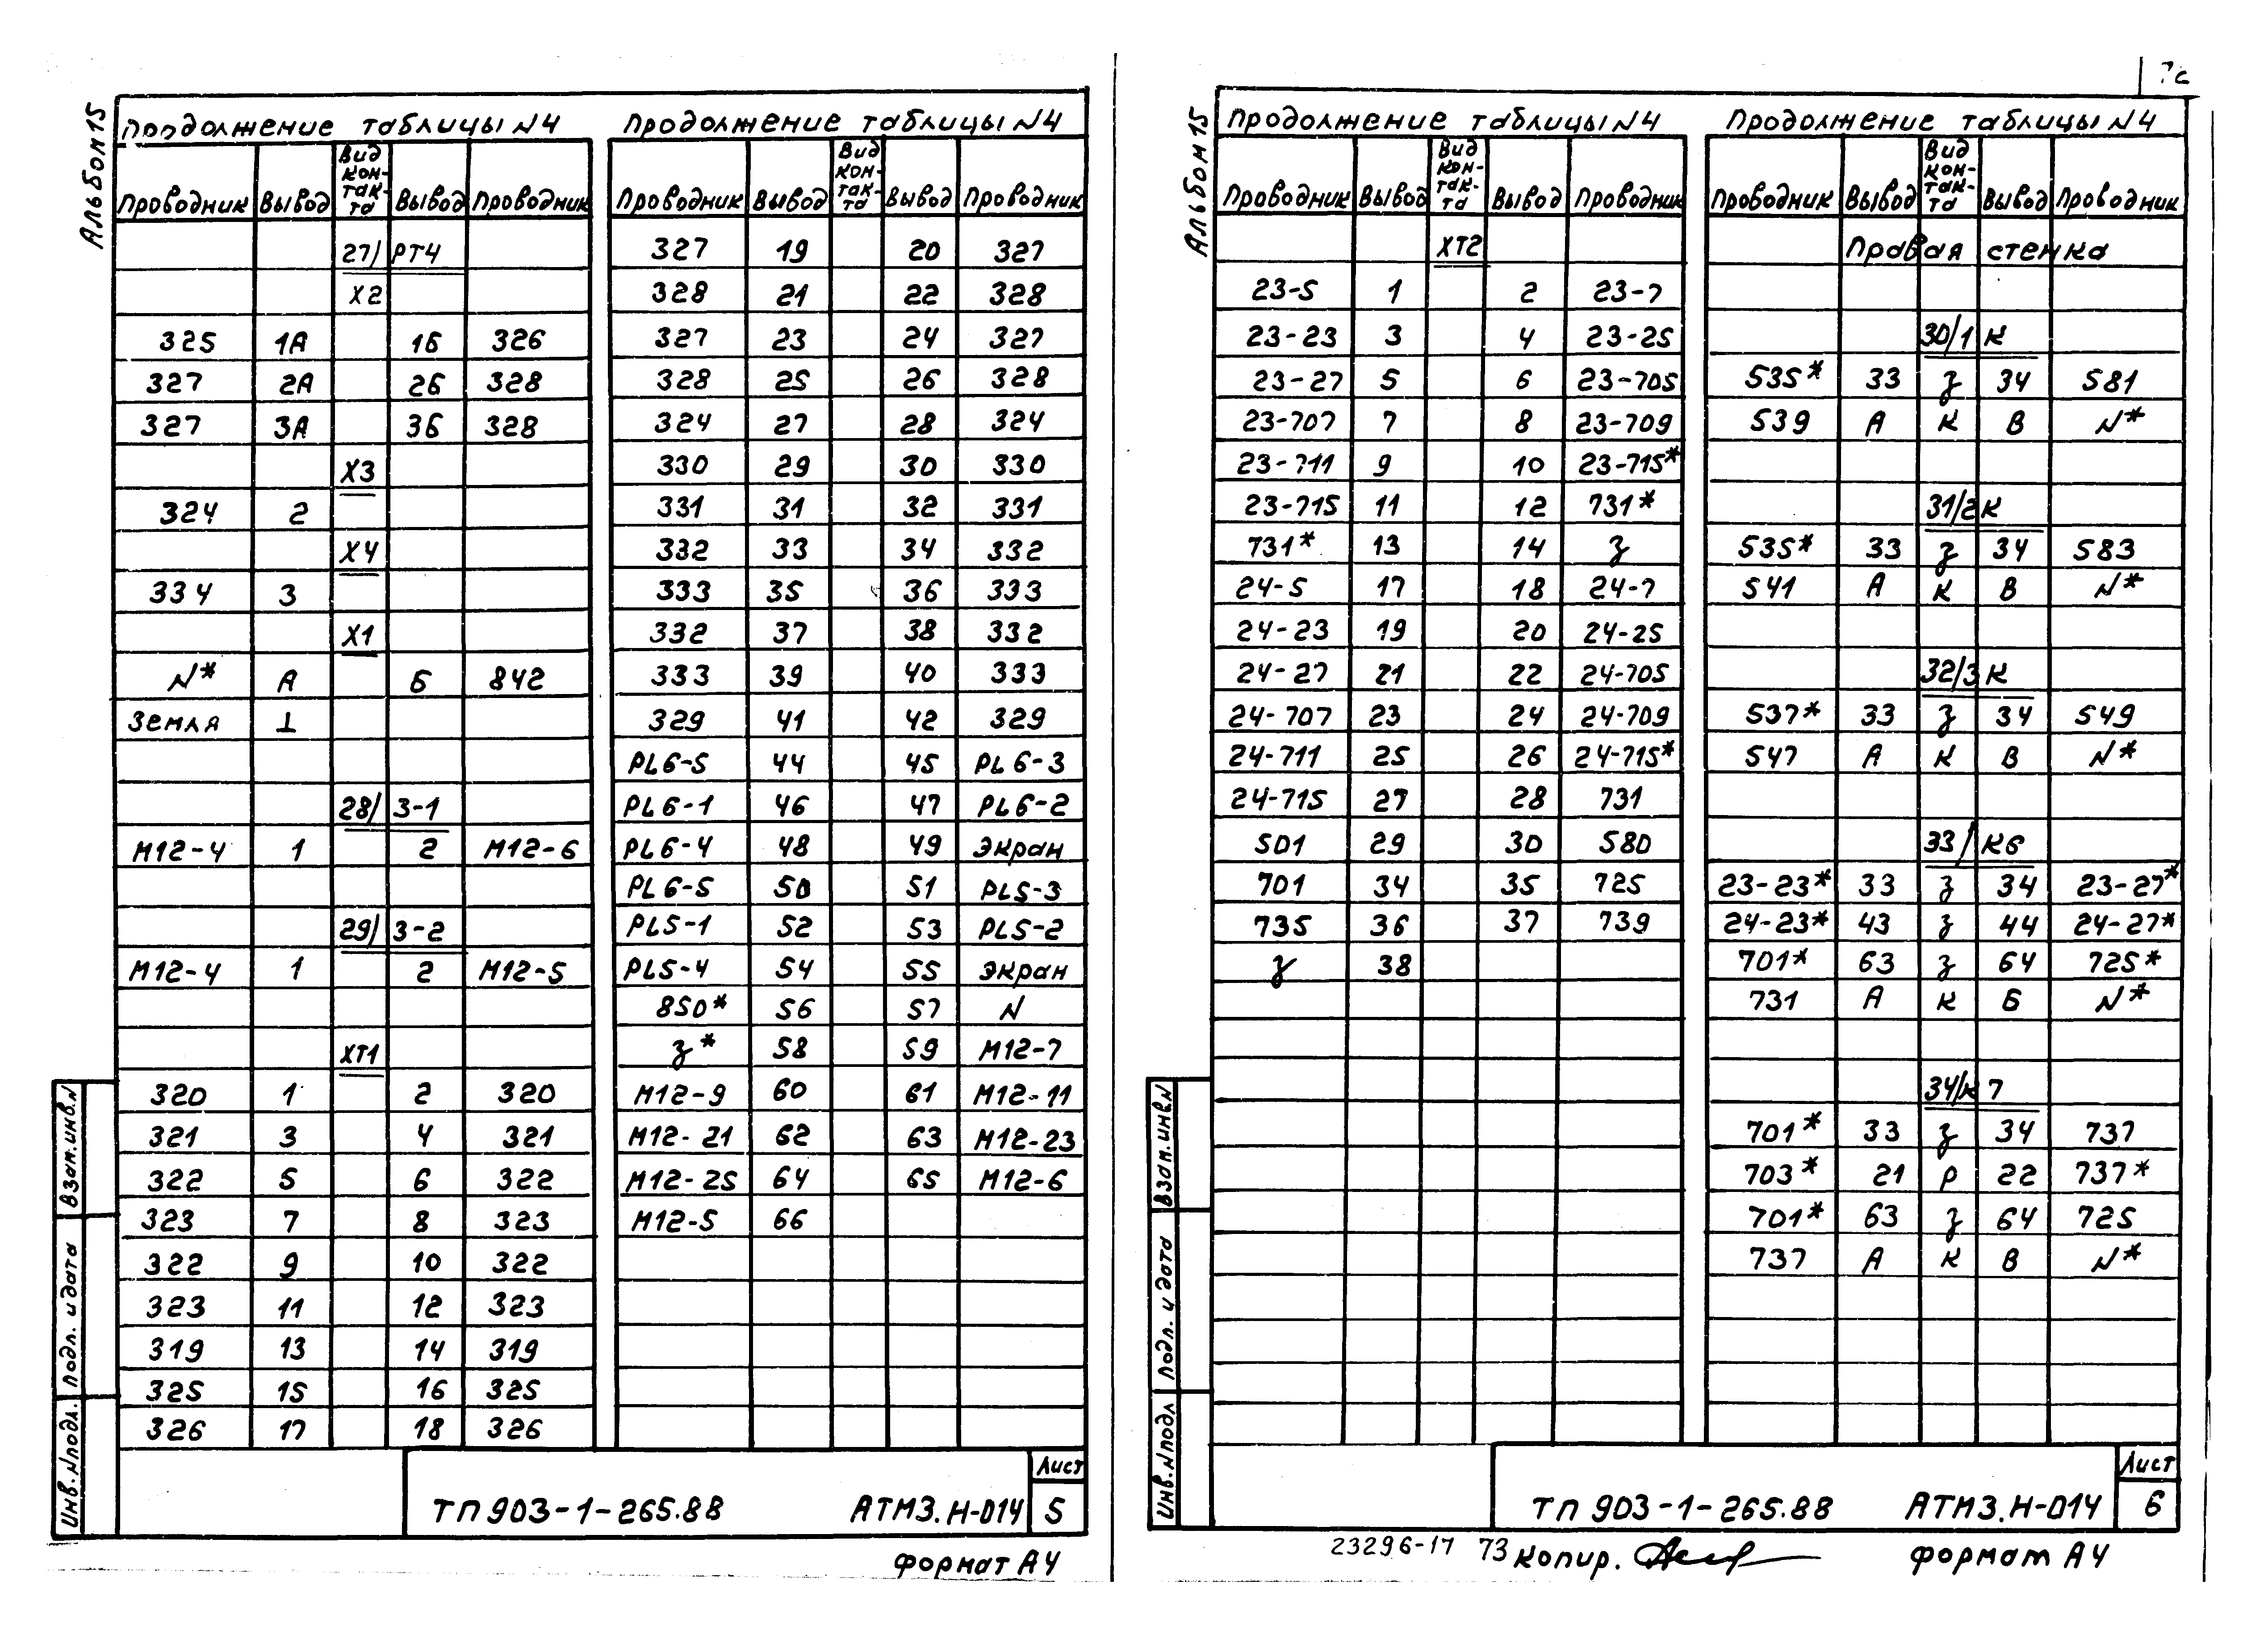 Альбом 15
Продолжение таблицы N4
Проводник Вывод Вид кон-так-та Вывод Проводник
27/ РТ4
X2
325 1А 1Б 326
327 2А 2Б 328
327 3А 3Б 328
X3
324 2
X4
334 3
X1
N* А Б 842
Земля ⊥
28/ 3-1
М12-4 1 2 М12-6
29/ 3-2
М12-4 1 2 М12-5
XT1
320 1 2 320
321 3 4 321
322 5 6 322
323 7 8 323
322 9 10 322
323 11 12 323
319 13 14 319
325 15 16 325
326 17 18 326
Продолжение таблицы N4
Проводник Вывод Вид кон-так-та Вывод Проводник
327 19 20 327
328 21 22 328
327 23 24 327
328 25 26 328
324 27 28 324
330 29 30 330
331 31 32 331
332 33 34 332
333 35 36 333
332 37 38 332
333 39 40 333
329 41 42 329
PL6-5 44 45 PL6-3
PL6-1 46 47 PL6-2
PL6-4 48 49 Экран
PL6-5 50 51 PL5-3
PL5-1 52 53 PL5-2
PL5-4 54 55 Экран
850* 56 57 N
З* 58 59 М12-7
М12-9 60 61 М12-11
М12-21 62 63 М12-23
М12-25 64 65 М12-6
М12-5 66
Взам. инв. N
Подп. и дата
Инв. N подл.
ТП 903-1-265.88 АТМ3.Н-014
Лист
5
Формат А4
Альбом 15
Продолжение таблицы N4
Проводник Вывод Вид кон-так-та Вывод Проводник
XT2
23-5 1 2 23-7
23-23 3 4 23-25
23-27 5 6 23-705
23-707 7 8 23-709
23-711 9 10 23-715*
23-715 11 12 731*
731* 13 14 З
24-5 17 18 24-7
24-23 19 20 24-25
24-27 21 22 24-705
24-707 23 24 24-709
24-711 25 26 24-715*
24-715 27 28 731
501 29 30 580
701 34 35 725
735 36 37 739
З 38
Продолжение таблицы N4
Проводник Вывод Вид кон-так-та Вывод Проводник
Правая стенка
30/1К
535* 33 З 34 581
539 А К В N*
31/2К
535* 33 З 34 583
541 А К В N*
32/3К
537* 33 З 34 549
547 А К В N*
33/К6
23-23* 33 З 34 23-27*
24-23* 43 З 44 24-27*
701* 63 З 64 725*
731 А К Б N*
34/К7
701* 33 З 34 737
703* 21 Р 22 737*
701* 63 З 64 725
737 А К В N*
Взам. инв. N
Подп. и дата
Инв. N подл
ТП 903-1-265.88 АТМ3.Н-014
Лист
6
23296-17 73 Копир. Формат А4